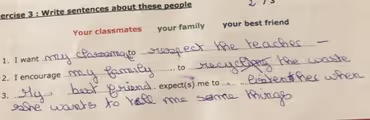 ercise 3 : Write sentences about these people
2 / 3
Your classmates your family your best friend
1. I want my classmate to respect the teacher
2. I encourage my family to recycling the waste
3. My best friend expect(s) me to listen her when
she wants to tell me some things